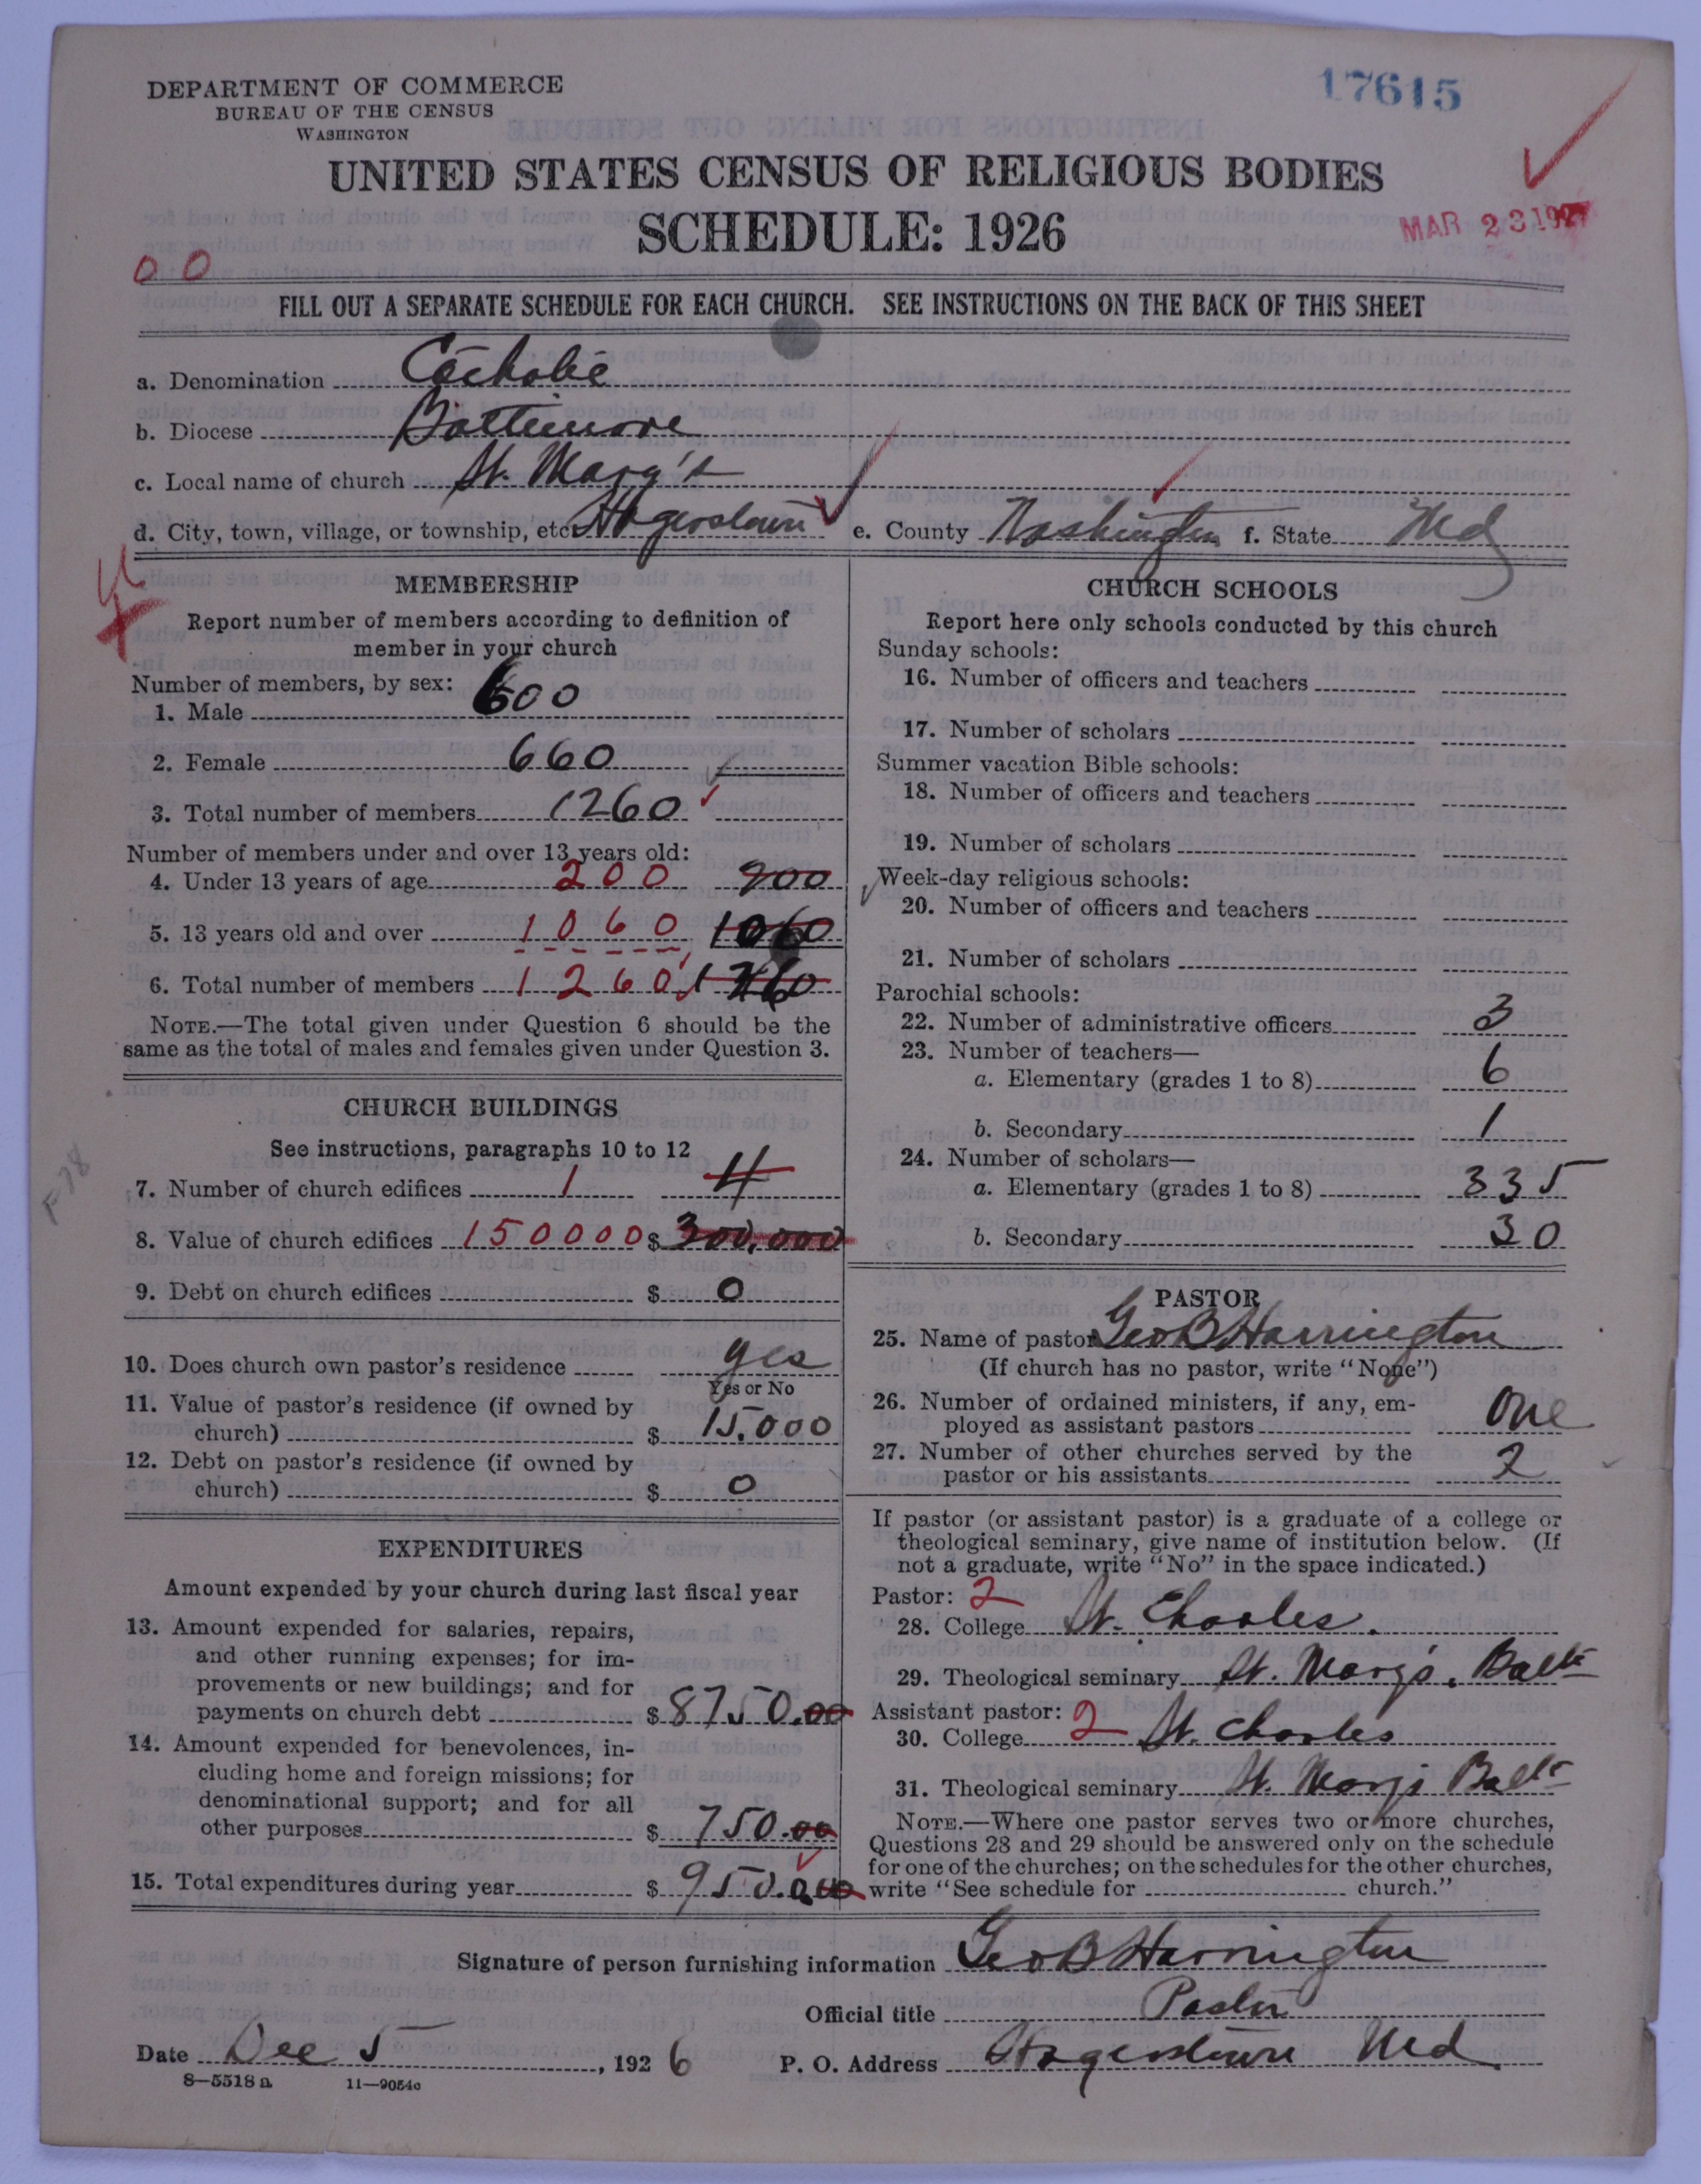 17615
DEPARTMENT OF COMMERCE
BUREAU OF THE CENSUS
WASHINGTON
UNITED STATES CENSUS OF RELIGIOUS BODIES
SCHEDULE: 1926
MAR 23 1927
0 0
FILL OUT A SEPARATE SCHEDULE FOR EACH CHURCH. SEE INSTRUCTIONS ON THE BACK OF THIS SHEET
a. Denomination Catholic
b. Diocese Baltimore
c. Local name of church St. Mary's
d. City, town, village, or township, etc. Hagerstown e. County Washington f. State Md
MEMBERSHIP
Report number of members according to definition of
member in your church
Number of members, by sex:
1. Male 600
2. Female 660
3. Total number of members 1260
Number of members under and over 13 years old:
4. Under 13 years of age 200 200
5. 13 years old and over 1060 1060
6. Total number of members 1260 1260
NOTE.—The total given under Question 6 should be the
same as the total of males and females given under Question 3.
CHURCH BUILDINGS
See instructions, paragraphs 10 to 12
7. Number of church edifices 1 4
8. Value of church edifices 150000 $ 300,000
9. Debt on church edifices $ 0
10. Does church own pastor's residence yes
Yes or No
11. Value of pastor's residence (if owned by
church) $ 15,000
12. Debt on pastor's residence (if owned by
church) $ 0
EXPENDITURES
Amount expended by your church during last fiscal year
13. Amount expended for salaries, repairs,
and other running expenses; for im-
provements or new buildings; and for
payments on church debt $ 8750.00
14. Amount expended for benevolences, in-
cluding home and foreign missions; for
denominational support; and for all
other purposes $ 750.00
15. Total expenditures during year $ 950.0.00
CHURCH SCHOOLS
Report here only schools conducted by this church
Sunday schools:
16. Number of officers and teachers
17. Number of scholars
Summer vacation Bible schools:
18. Number of officers and teachers
19. Number of scholars
Week-day religious schools:
20. Number of officers and teachers
21. Number of scholars
Parochial schools:
22. Number of administrative officers 3
23. Number of teachers—
a. Elementary (grades 1 to 8) 6
b. Secondary 1
24. Number of scholars—
a. Elementary (grades 1 to 8) 335
b. Secondary 30
PASTOR
25. Name of pastor Geo B Harrington
(If church has no pastor, write "None")
26. Number of ordained ministers, if any, em-
ployed as assistant pastors One
27. Number of other churches served by the
pastor or his assistants 2
If pastor (or assistant pastor) is a graduate of a college or
theological seminary, give name of institution below. (If
not a graduate, write "No" in the space indicated.)
Pastor: 2
28. College St. Charles.
29. Theological seminary St. Mary's. Balto
Assistant pastor: 2
30. College St. Charles
31. Theological seminary St. Mary's Balto
NOTE.—Where one pastor serves two or more churches,
Questions 28 and 29 should be answered only on the schedule
for one of the churches; on the schedules for the other churches,
write "See schedule for church."
Signature of person furnishing information Geo B Harrington
Official title Pastor
Date Dec 5, 1926 P. O. Address Hagerstown Md
8—5518 a 11—9054c